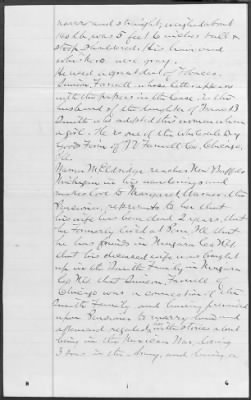 narrow and straight, weighed about
160 lb, was 5 feet 6 inches tall &
stoop shouldered. His hair and
whiskers were gray.
He used a great deal of Tobacco.
Simeon Farwell whose letter appears
with the papers in the case, is the
husband of the daughter of
Smith who adopted this woman when
a girl. He is one of the wholesale Dry
Goods Firm of Farwell & Co, Chicago,
Ills.
Eldridge reaches New Buffalo
Michigan in his and
makes love to Margaret the
Pensioner, represents to her that
his wife has been dead 2 years, that
he formerly lived at Ills that
he has friends in Co Ills
that his deceased wife was brought
up in the Smith Family in
Co Ills that Simeon Farwell of
Chicago was a connection of the
Smith Family and having prevailed
upon Pensioner to marry him and
afterward regaled with stories about
being in the Mexican War, being
3 in the Army, and having a